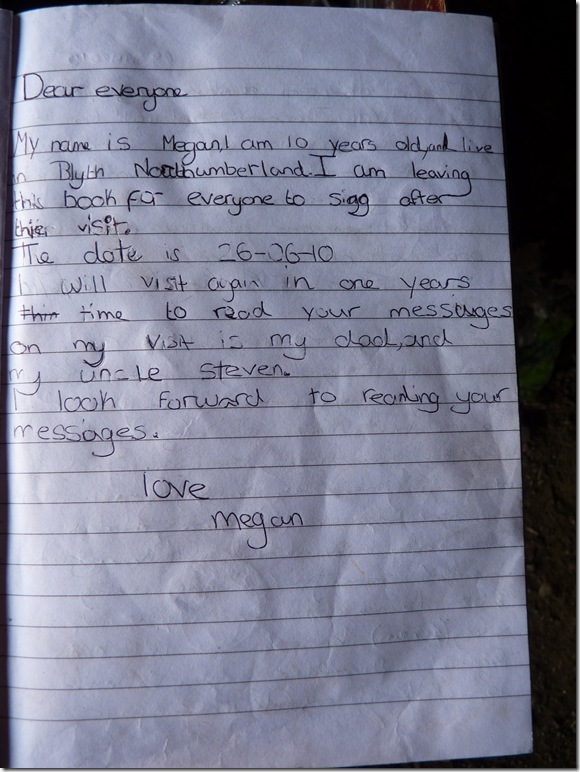 Dear everyone
My name is Megan, I am 10 years old, and live
in Blyth Northumberland. I am leaving
this book for everyone to sigg after
thier visit.
The date is 26-06-10
I will visit again in one years
time to read your messages
on my visit is my dad, and
my uncle Steven.
I look forward to reanling your
messages.
love
megan